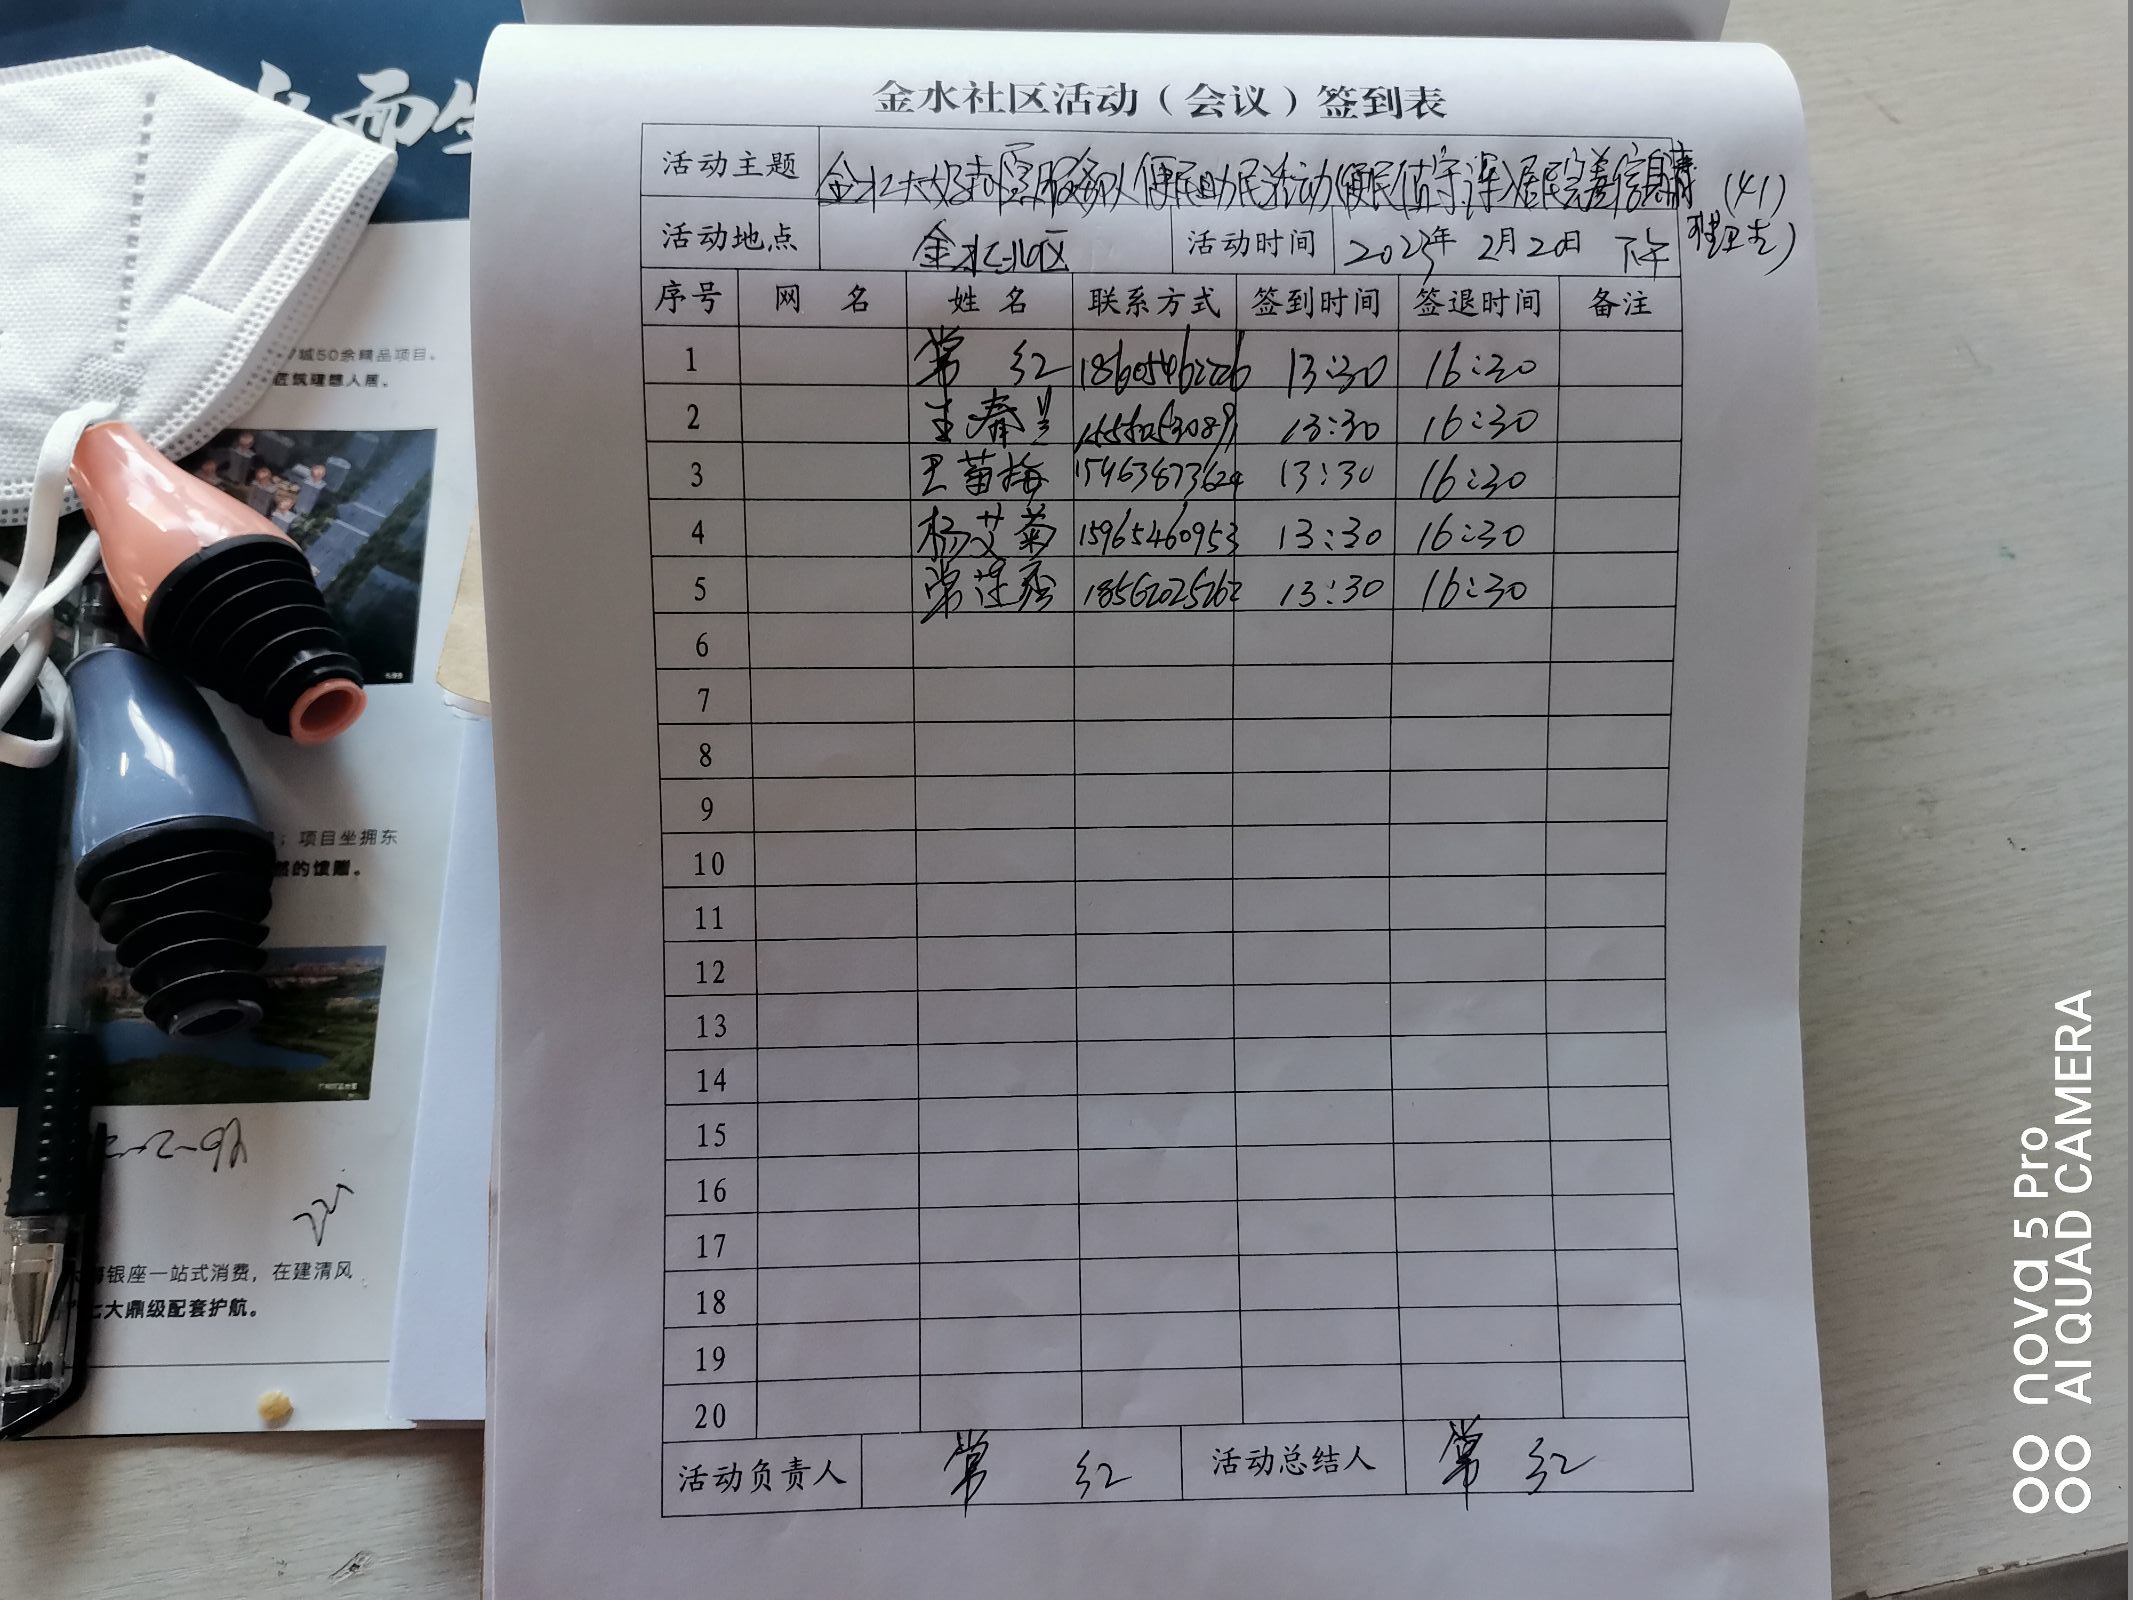 金水社区活动（会议）签到表
活动主题 金水大嫂志愿服务队便民助民活动(便民值守、深入居民完善信息、清 (41)
理卫生)
活动地点 金水北区 活动时间 2023年 2月20日 下午
序号 网 名 姓 名 联系方式 签到时间 签退时间 备注
1 常 红 13:30 16:30
2 王春兰 13:30 16:30
3 王苗梅 15963873624 13:30 16:30
4 杨艾菊 15965460953 13:30 16:30
5 常莲秀 18562025262 13:30 16:30
6
7
8
9
10
11
12
13
14
15
16
17
18
19
20
活动负责人 常 红 活动总结人 常 红
城50余精品项目。
匠筑理想人居。
项目坐拥东
的馈赠。
银座一站式消费，在建清风
七大鼎级配套护航。
而生
nova 5 Pro
AI QUAD CAMERA